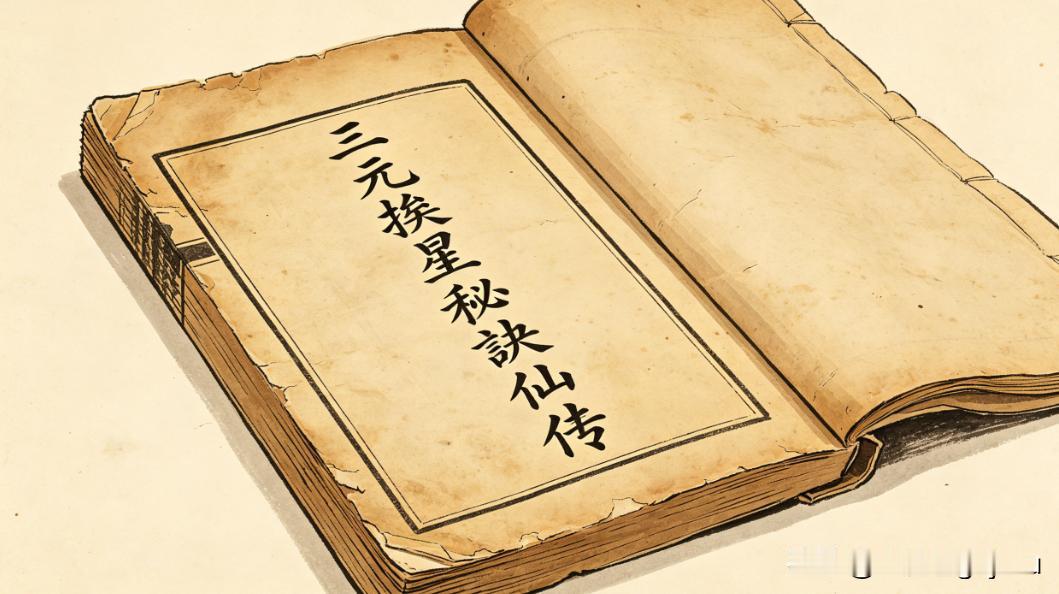 三元挨星秘訣仙传